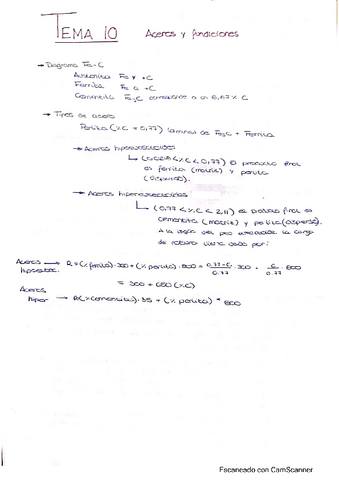 TEMA 10 Aceros y fundiciones
→ Diagrama Fe-C
Austenita Fe γ + C
Ferrita Fe α + C
Cementita Fe3C corresponde a un 6,67% C
→ Tipos de acero
Perlita (%C = 0,77) láminas de Fe3C + Ferrita
→ Aceros hipoeutectoides
(0,0218 < % C < 0,77) El producto final
es ferrita (matriz) y perlita
(dispersa).
→ Aceros hipereutectoides
(0,77 < % C < 2,11) El producto final es
cementita (matriz) y perlita (dispersa).
A la regla del la carga
de rotura viene dada por:
Aceros → R = (% ferrita) · 300 + (% perlita) · 800 = 0,77-C/0,77 · 300 + C/0,77 · 800
= 300 + 650 (%C)
Aceros
hiper → R (% cementita) · 35 + (% perlita) * 800
Escaneado con CamScanner